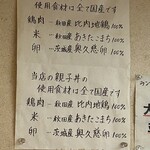 使用食材は全て国産です
鶏肉 ― 秋田産 比内地鶏 100%
米 ― 秋田産 あきたこまち 100%
卵 ― 茨城産 奥久慈卵 100%
当店の親子丼の
使用食材は全て国産です
鶏肉 ― 秋田産 比内地鶏 100%
米 ― 秋田産 あきたこまち 100%
卵 ― 茨城産 奥久慈卵 100%